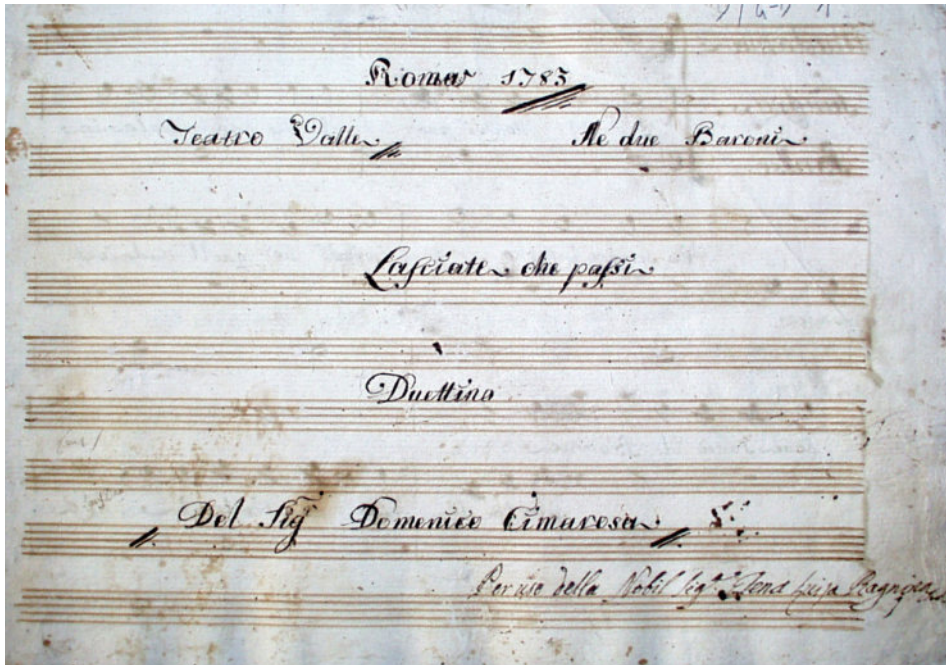 Roma 1783
Teatro Valle Ne due Baroni
Lasciate che passi
Duettino
Del Sig.r Domenico Cimarosa
Per uso della Nobil Sig.ra